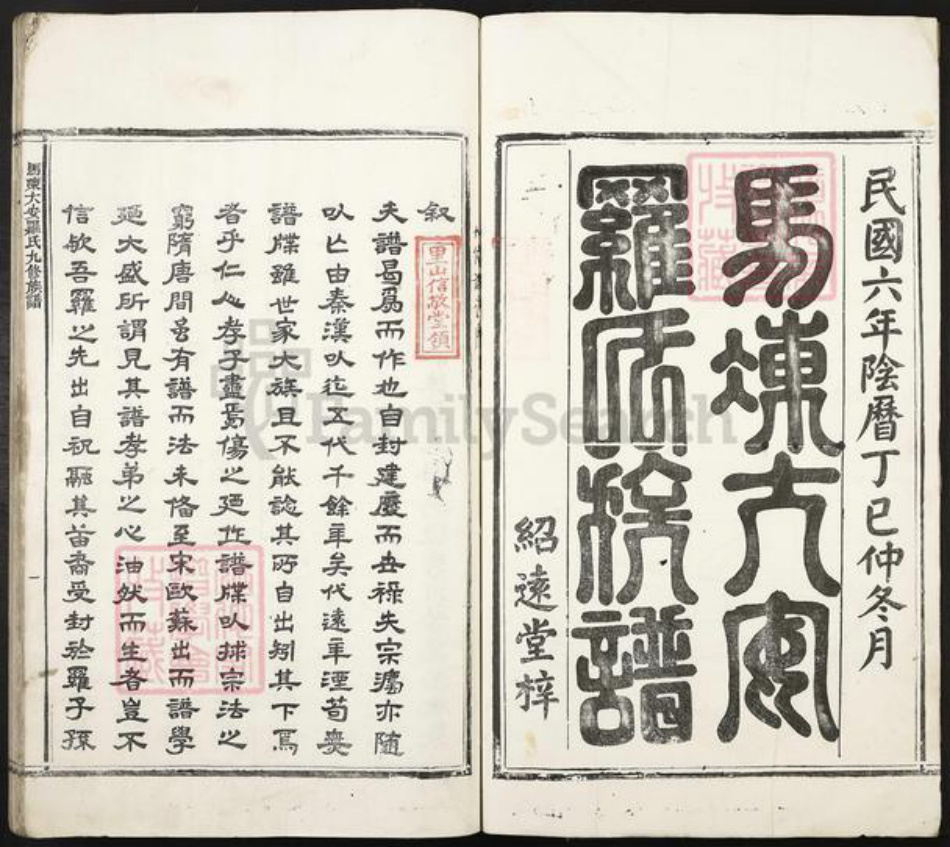 民國六年陰曆丁巳仲冬月
馬涷大安
羅氏族譜
紹遠堂梓
叙
里山信敬堂領
夫譜曷爲而作也自封建廢而世祿失宗灋亦隨
㕥亡由秦漢㕥迄五代千餘年矣代遠年湮苟無
譜牒雖世家大族且不能諗其所自出矧其下焉
者乎仁人孝子盡焉傷之廼作譜牒㕥捄宗法之
窮隋唐間虽有譜而法未備至宋歐蘇出而譜學
廼大盛所謂見其譜孝弟之心油然而生者豈不
信欤吾羅之先出自祝融其苗裔受封於羅子孫
馬涷大安羅氏九修族譜
一
FamilySearch